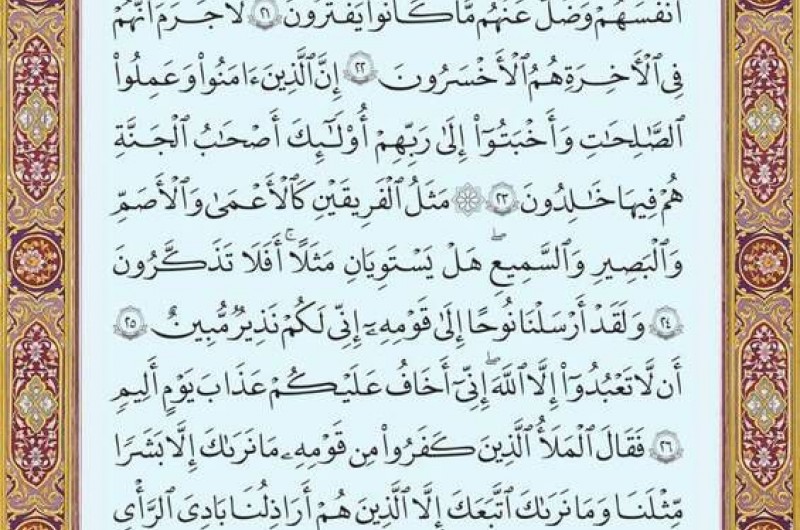 أَنفُسَهُمْ وَضَلَّ عَنْهُم مَّا كَانُوا۟ يَفْتَرُونَ ٢١ لَا جَرَمَ أَنَّهُمْ
فِى ٱلْأَخِرَةِ هُمُ ٱلْأَخْسَرُونَ ٢٢ إِنَّ ٱلَّذِينَ ءَامَنُوا۟ وَعَمِلُوا۟
ٱلصَّـٰلِحَـٰتِ وَأَخْبَتُوٓا۟ إِلَىٰ رَبِّهِمْ أُو۟لَـٰٓئِكَ أَصْحَـٰبُ ٱلْجَنَّةِ
هُمْ فِيهَا خَـٰلِدُونَ ٢٣ ۞ مَثَلُ ٱلْفَرِيقَيْنِ كَٱلْأَعْمَىٰ وَٱلْأَصَمِّ
وَٱلْبَصِيرِ وَٱلسَّمِيعِ ۖ هَلْ يَسْتَوِيَانِ مَثَلًا ۚ أَفَلَا تَذَكَّرُونَ
٢٤ وَلَقَدْ أَرْسَلْنَا نُوحًا إِلَىٰ قَوْمِهِۦٓ إِنِّى لَكُمْ نَذِيرٌ مُّبِينٌ ٢٥
أَن لَّا تَعْبُدُوٓا۟ إِلَّا ٱللَّهَ ۖ إِنِّىٓ أَخَافُ عَلَيْكُمْ عَذَابَ يَوْمٍ أَلِيمٍ
٢٦ فَقَالَ ٱلْمَلَأُ ٱلَّذِينَ كَفَرُوا۟ مِن قَوْمِهِۦ مَا نَرَىٰكَ إِلَّا بَشَرًا
مِّثْلَنَا وَمَا نَرَىٰكَ ٱتَّبَعَكَ إِلَّا ٱلَّذِينَ هُمْ أَرَاذِلُنَا بَادِىَ ٱلرَّأْىِ